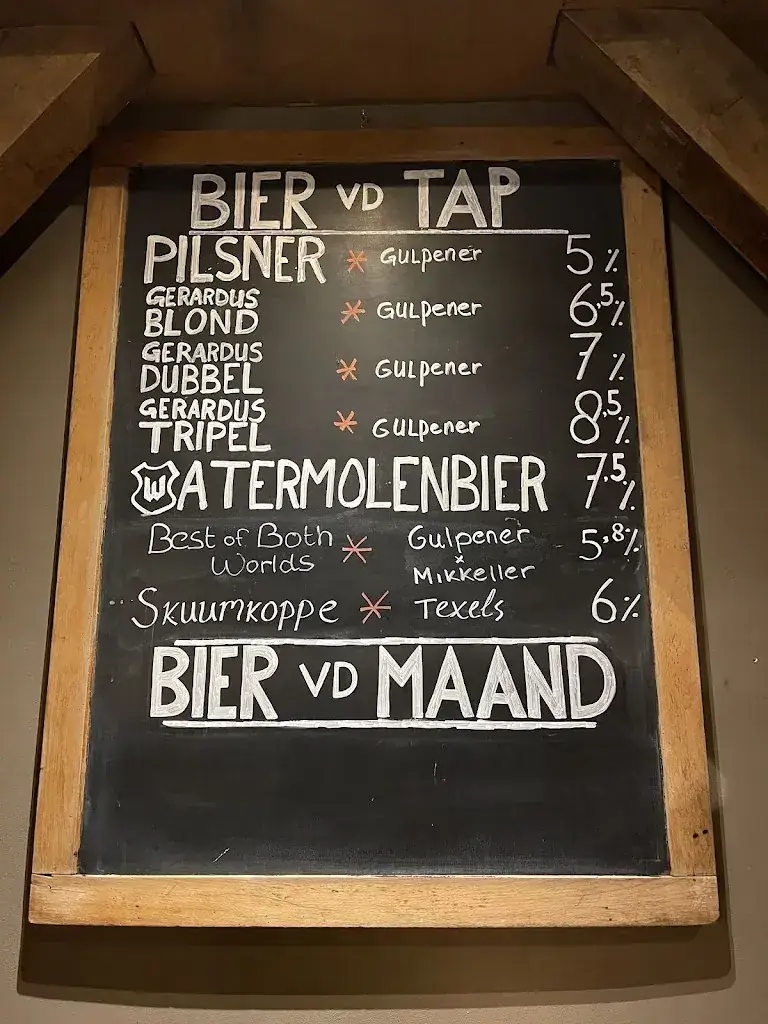 BIER VD TAP
PILSNER * Gulpener 5%
GERARDUS
BLOND * Gulpener 6,5%
GERARDUS
DUBBEL * Gulpener 7%
GERARDUS
TRIPEL * Gulpener 8,5%
WATERMOLENBIER 7,5%
Best of Both * Gulpener 5,8%
Worlds x Mikkeller
Skuumkoppe * Texels 6%
BIER VD MAAND